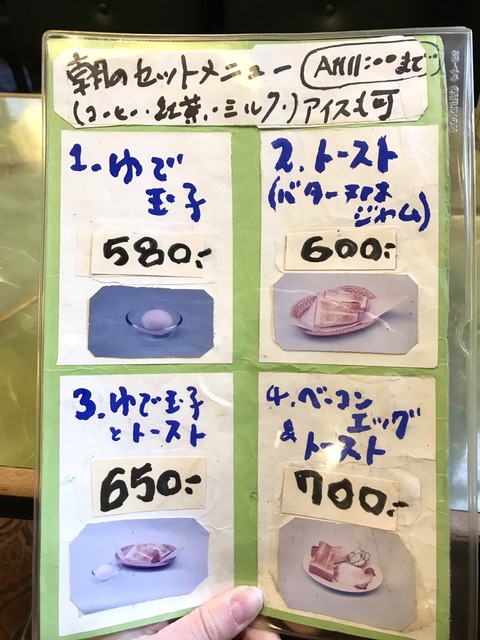 朝のセットメニュー AM11:00まで
(コーヒー・紅茶・ミルク・)アイスも可
1.ゆで
玉子
580:-
2.トースト
(バター又は
ジャム)
600:-
3.ゆで玉子
とトースト
650:-
4.ベーコン
エッグ
&トースト
700:-